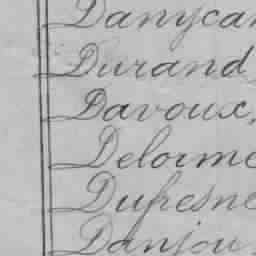 Danycan
Durand
Davoux,
Delorme
Dufresne
Danjou